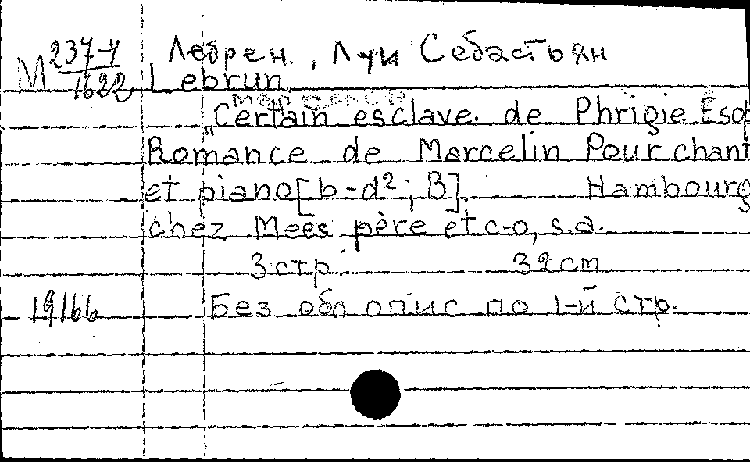 М 237-4/1622 Лебрен, Луи Себастьян
Lebrun
"Certain esclave de Phrigie Esop
Romance de Marcelin Pour chant
et piano [b-d²; B]. Hambourg
chez Mees père et c-o, s.a.
3 стр. 32 cm
19166 Без обл опис по 1-й стр.